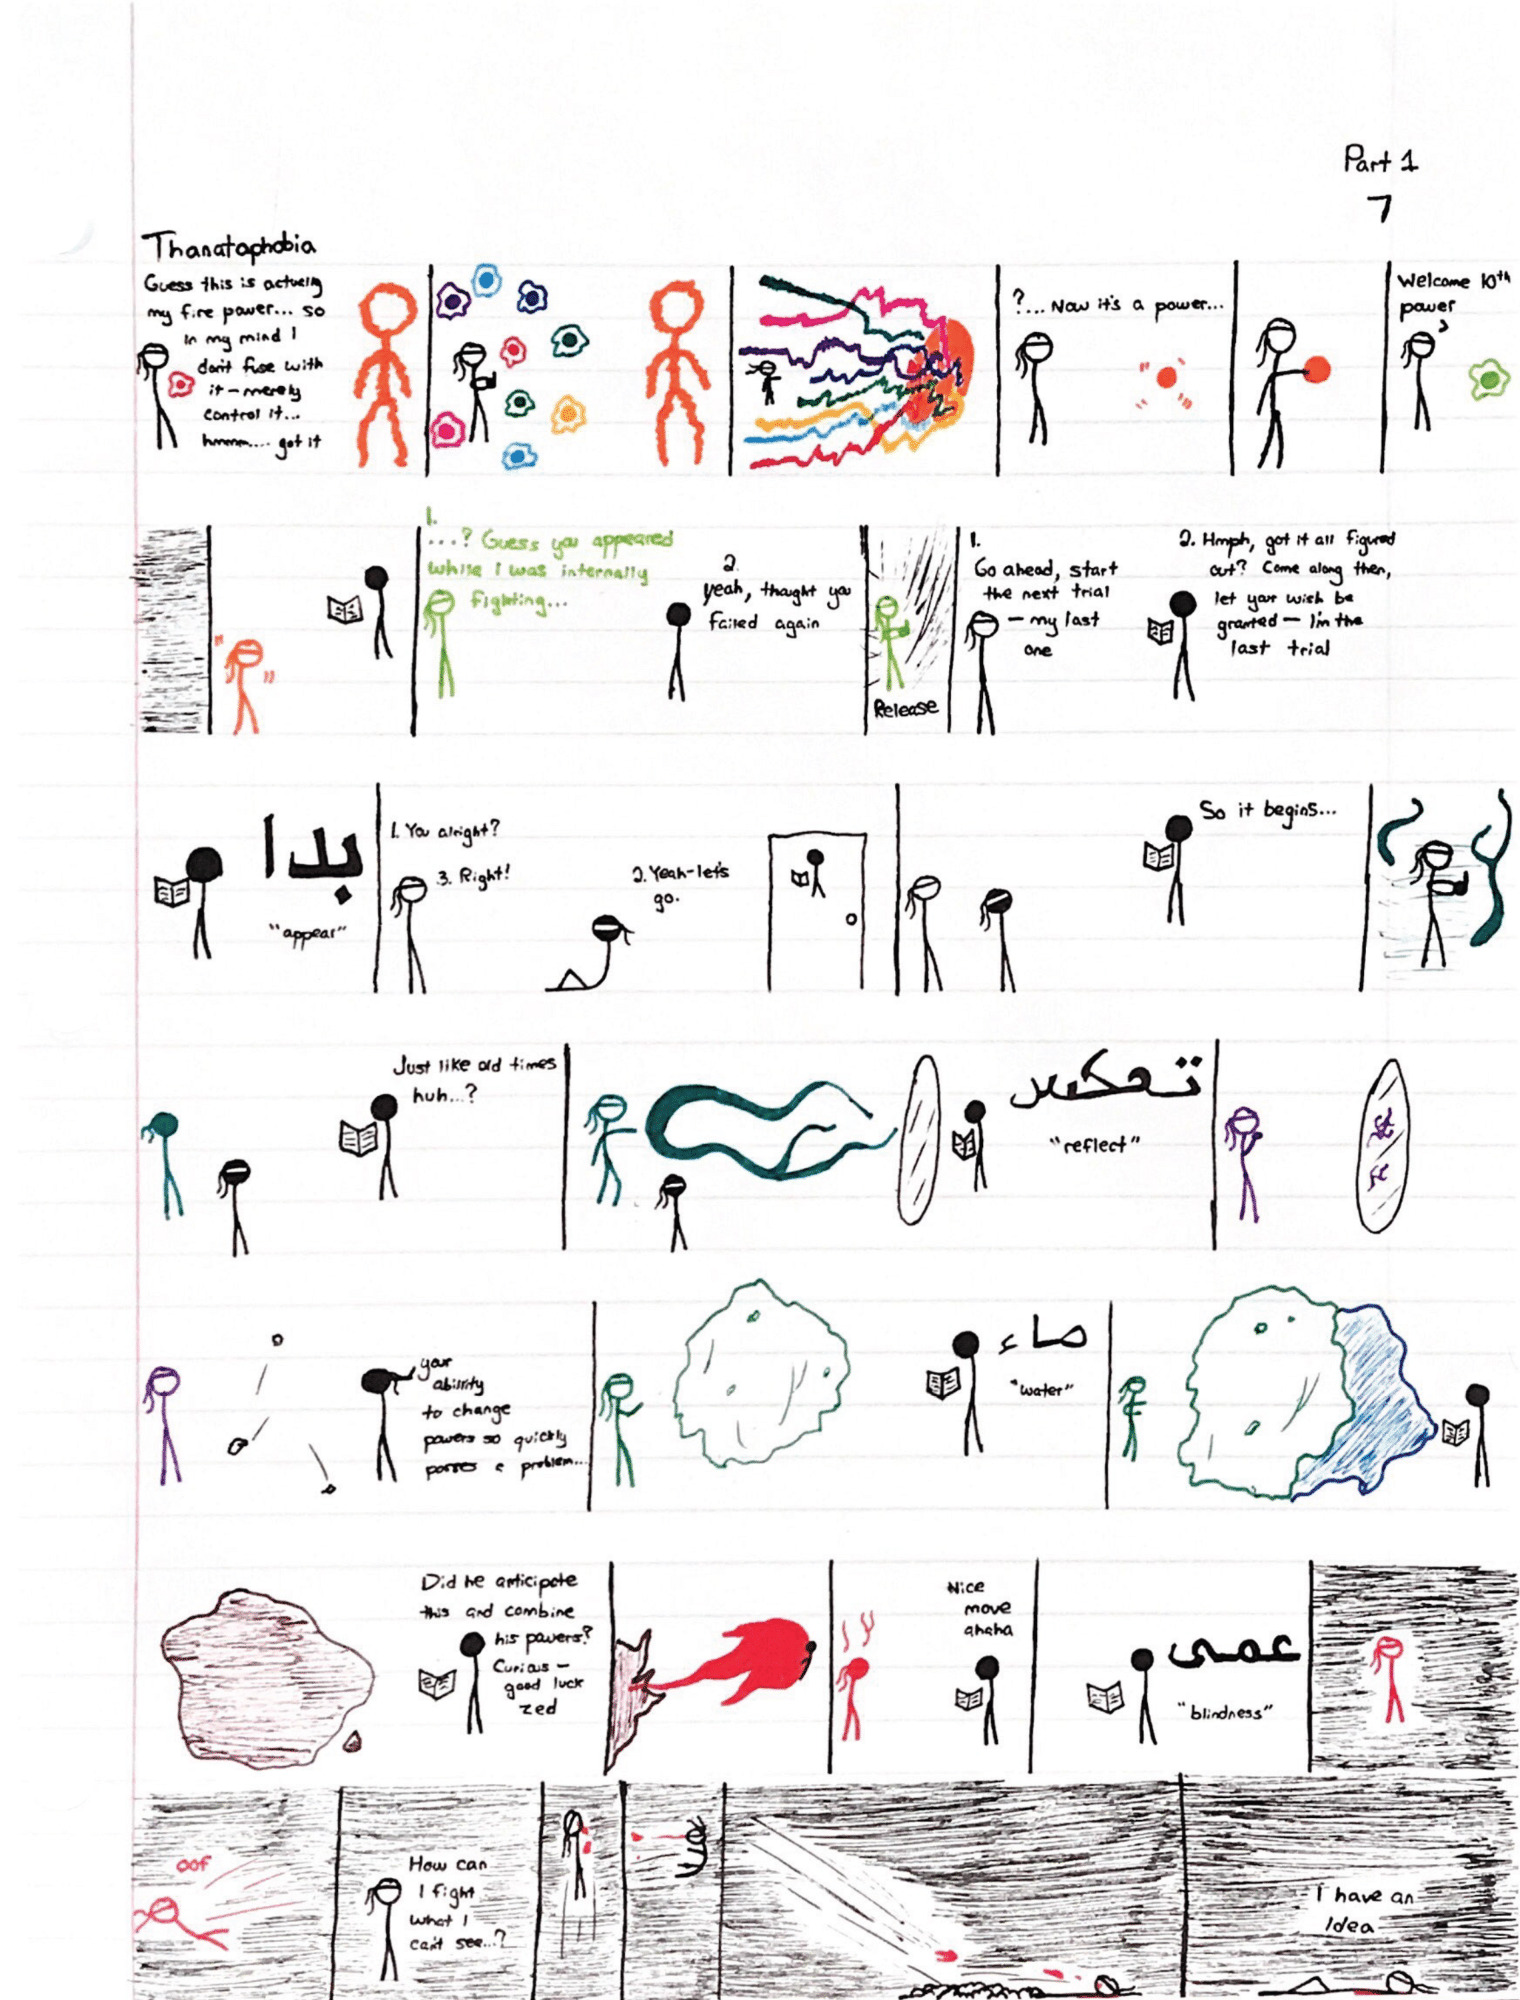 Part 1
7
Thanataphobia
Guess this is actually
my fire power... so
in my mind I
don't fuse with
it - merely
control it...
hmmm.... got it
?... Now it's a power...
Welcome 10th
power
1.
...? Guess you appeared
while I was internally
fighting...
2.
yeah, thought you
failed again
Release
1.
Go ahead, start
the next trial
- my last
one
2. Hmph, got it all figured
out? Come along then,
let your wish be
granted - I'm the
last trial
بدا
"appear"
1. You alright?
3. Right!
2. Yeah-let's
go.
So it begins...
Just like old times
huh...?
"reflect"
your
ability
to change
powers so quickly
poses a problem...
ماء
"water"
Did he anticipate
this and combine
his powers?
Curious -
good luck
zed
Nice
move
ahaha
عمى
"blindness"
oof
How can
I fight
what I
can't see...?
I have an
Idea